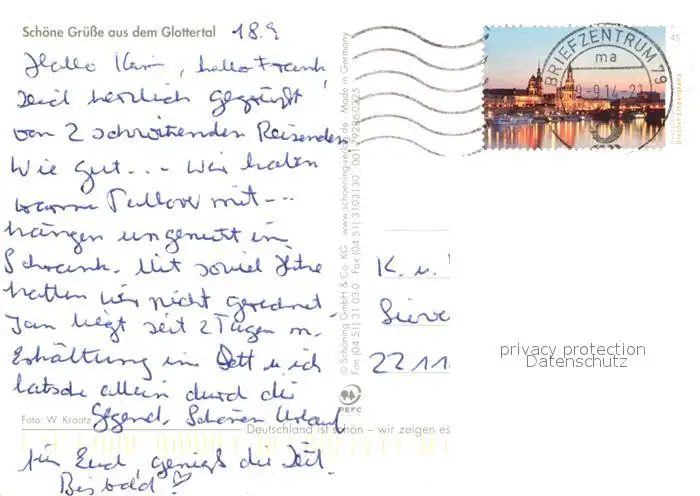 Schöne Grüße aus dem Glottertal 18.9
Hallo Kari, hallo Frank,
seid herzlich gegrüßt
von 2 schwitzenden Reisenden
Wie gut... wir haben
warme Pullover mit --
hängen ungenutzt im
Schrank. Mit soviel Hitze
hatten wir nicht gerechnet.
Jan liegt seit 2 Tagen m.
Erkältung im Bett u. ich
latsche allein durch die
Gegend. Schönen Urlaub
für Euch, genießt die Zeit.
Bis bald
Foto: W. Kraatz
Deutschland ist schön – wir zeigen es
© Schöning GmbH & Co. KG www.schoening-verlag.de Made in Germany
Fon (04 51) 31 03 0 Fax (04 51) 3103130 001 79286 0325
PEFC
BRIEFZENTRUM 79
ma
9.14-2
45
Dresden Elbpanorama
K. u.
22 11
privacy protection
Datenschutz